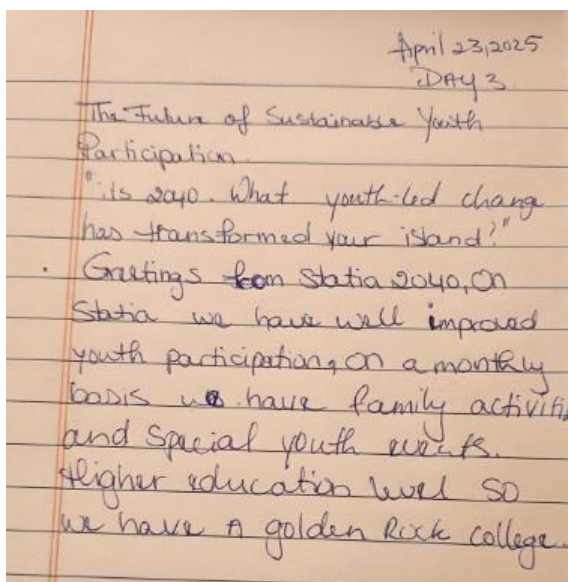 April 23, 2025
DAY 3
The Future of Sustainable Youth
Participation
"its 2040. What youth-led change
has transformed your island?"
. Greetings from Statia 2040, On
Statia we have well improved
youth participation, On a monthly
basis we have family activitie
and special youth events.
Higher education level so
we have A golden Rock College.